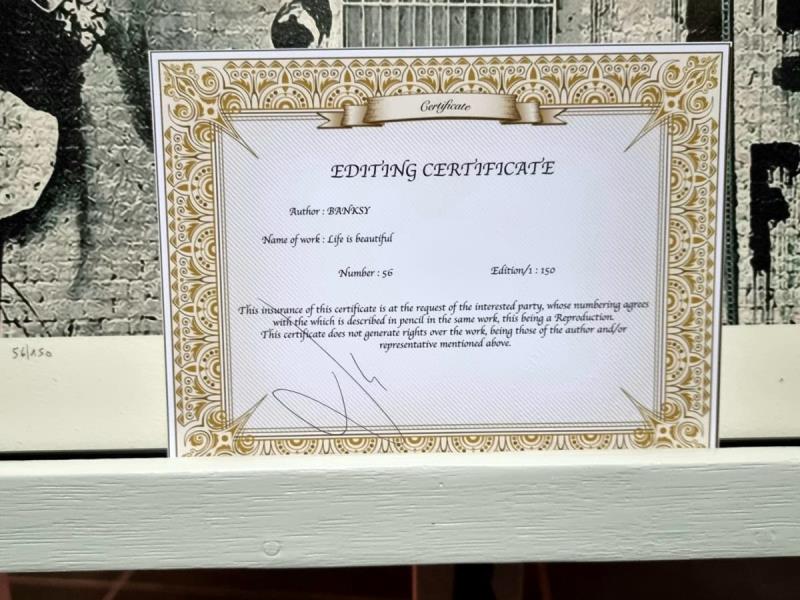 Certificate
EDITING CERTIFICATE
Author : BANKSY
Name of work : Life is beautiful
Number : 56
Edition/1 : 150
This insurance of this certificate is at the request of the interested party, whose numbering agrees
with the which is described in pencil in the same work, this being a Reproduction.
This certificate does not generate rights over the work, being those of the author and/or
representative mentioned above.
56/150